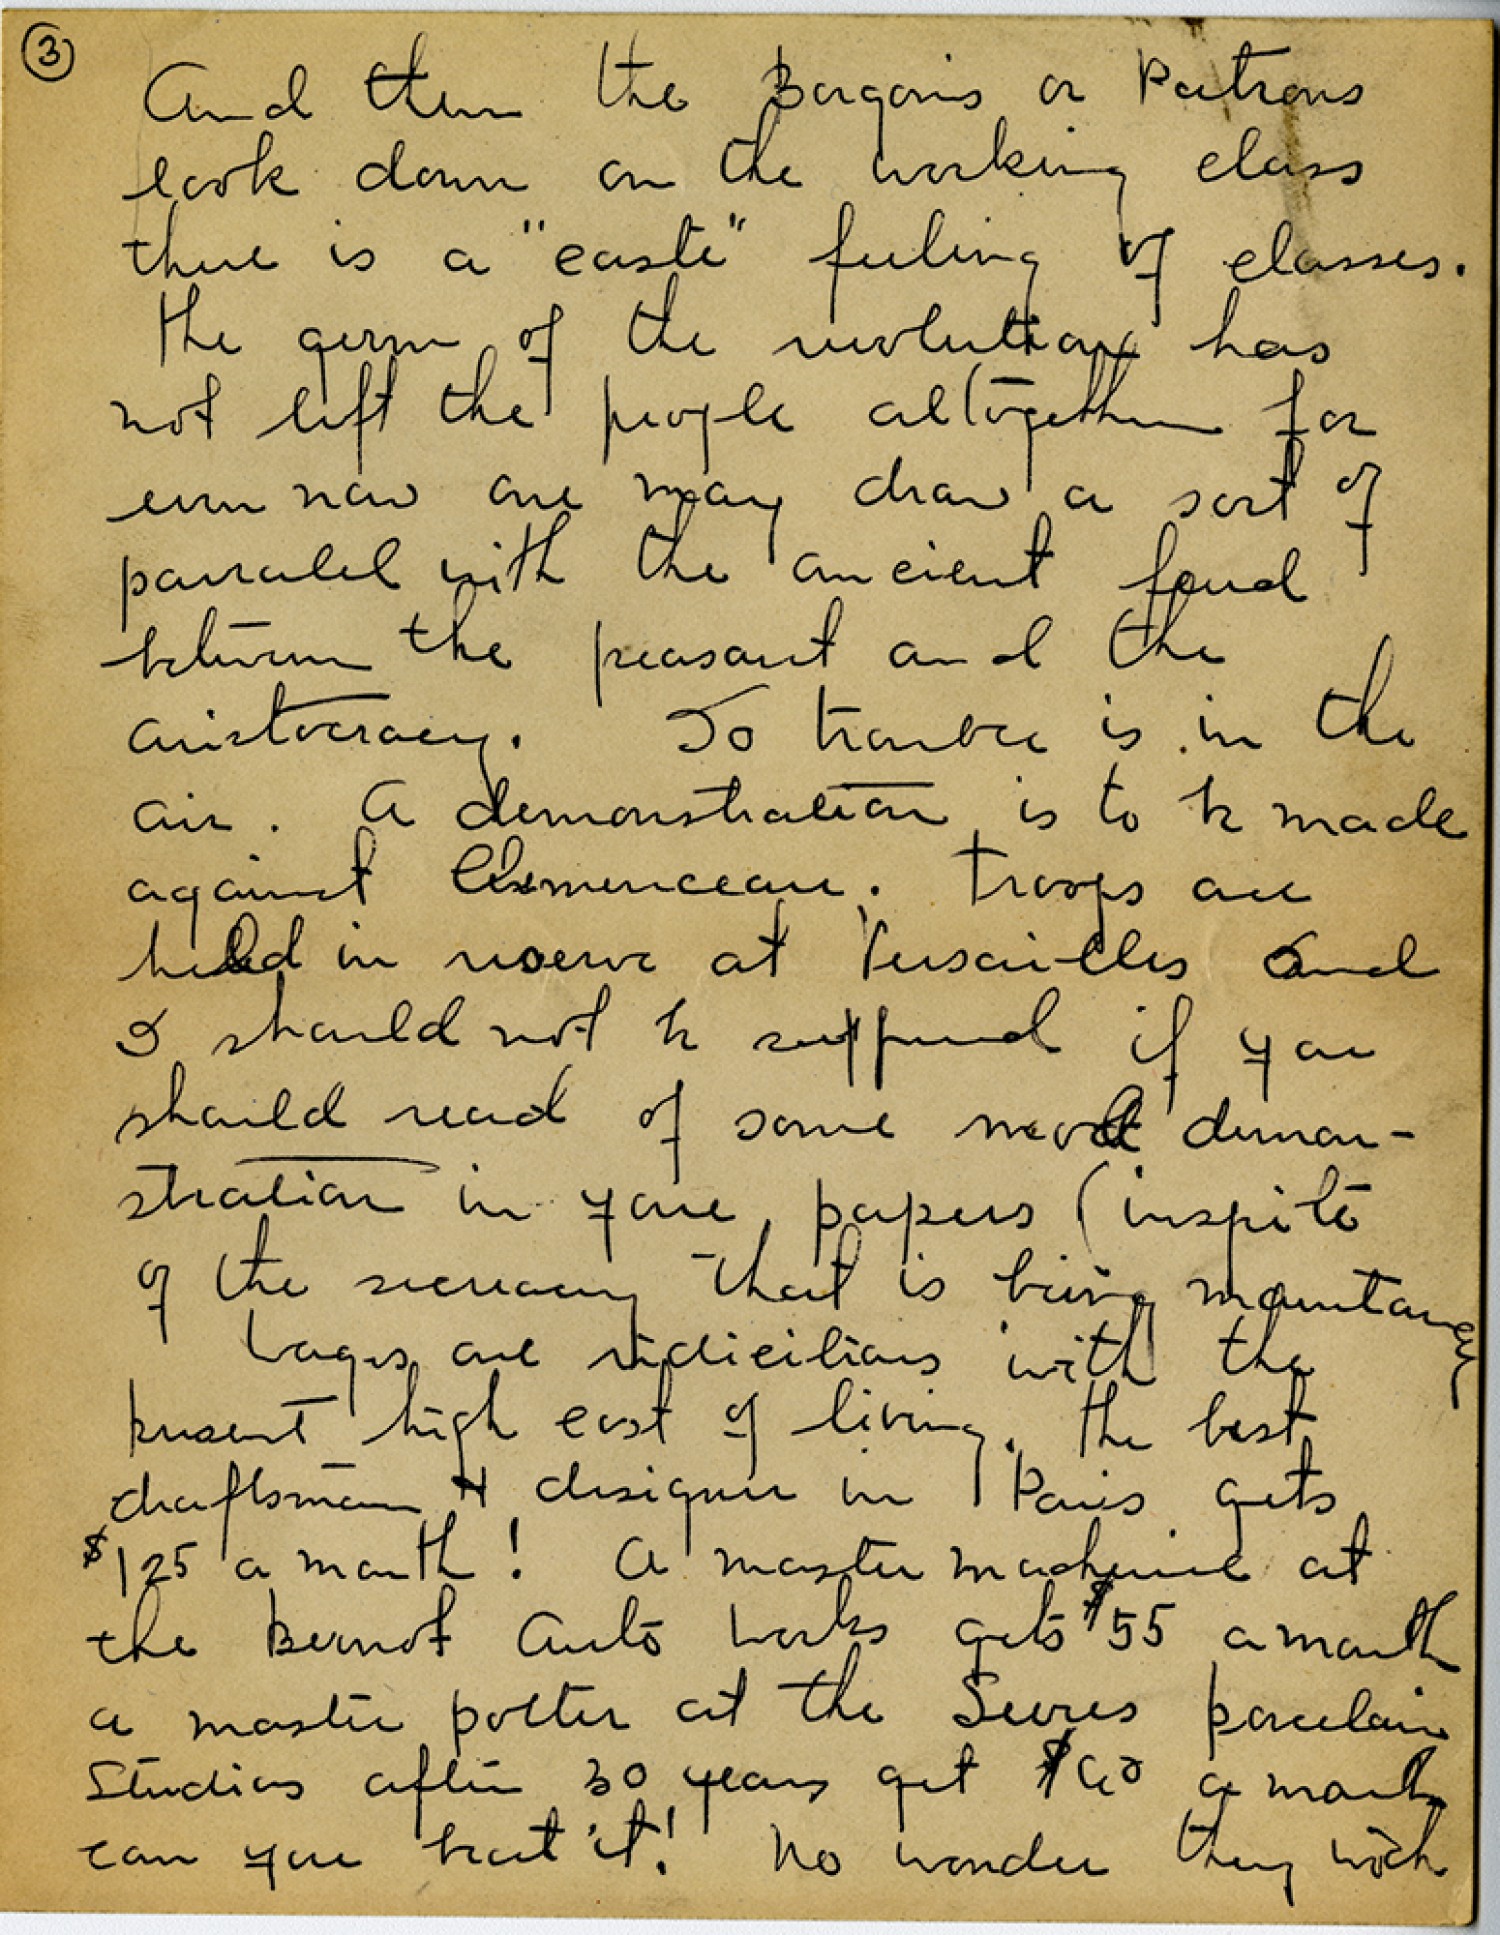 3
And then the Borgois or Patrons
look down on the working class
there is a "caste" feeling of classes.
The germ of the revolution has
not left the people altogether for
even now one may draw a sort of
parralel with the ancient feud
between the peasant and the
aristocracy. So trouble is in the
air. A demonstration is to be made
against Clemenceau. Troops are
held in reserve at Versailles and
I should not be surprised if you
should read of some demon-
stration in your papers (inspite
of the secreacy that is being
Wages are with the
present high cost of living. The best
draftsman & designer in Paris gets
$125 a month! A master at
the Auto Works gets $55 a month
a master potter at the Sevres porcelain
Studios after 30 years get a month
can you beat it! No wonder they